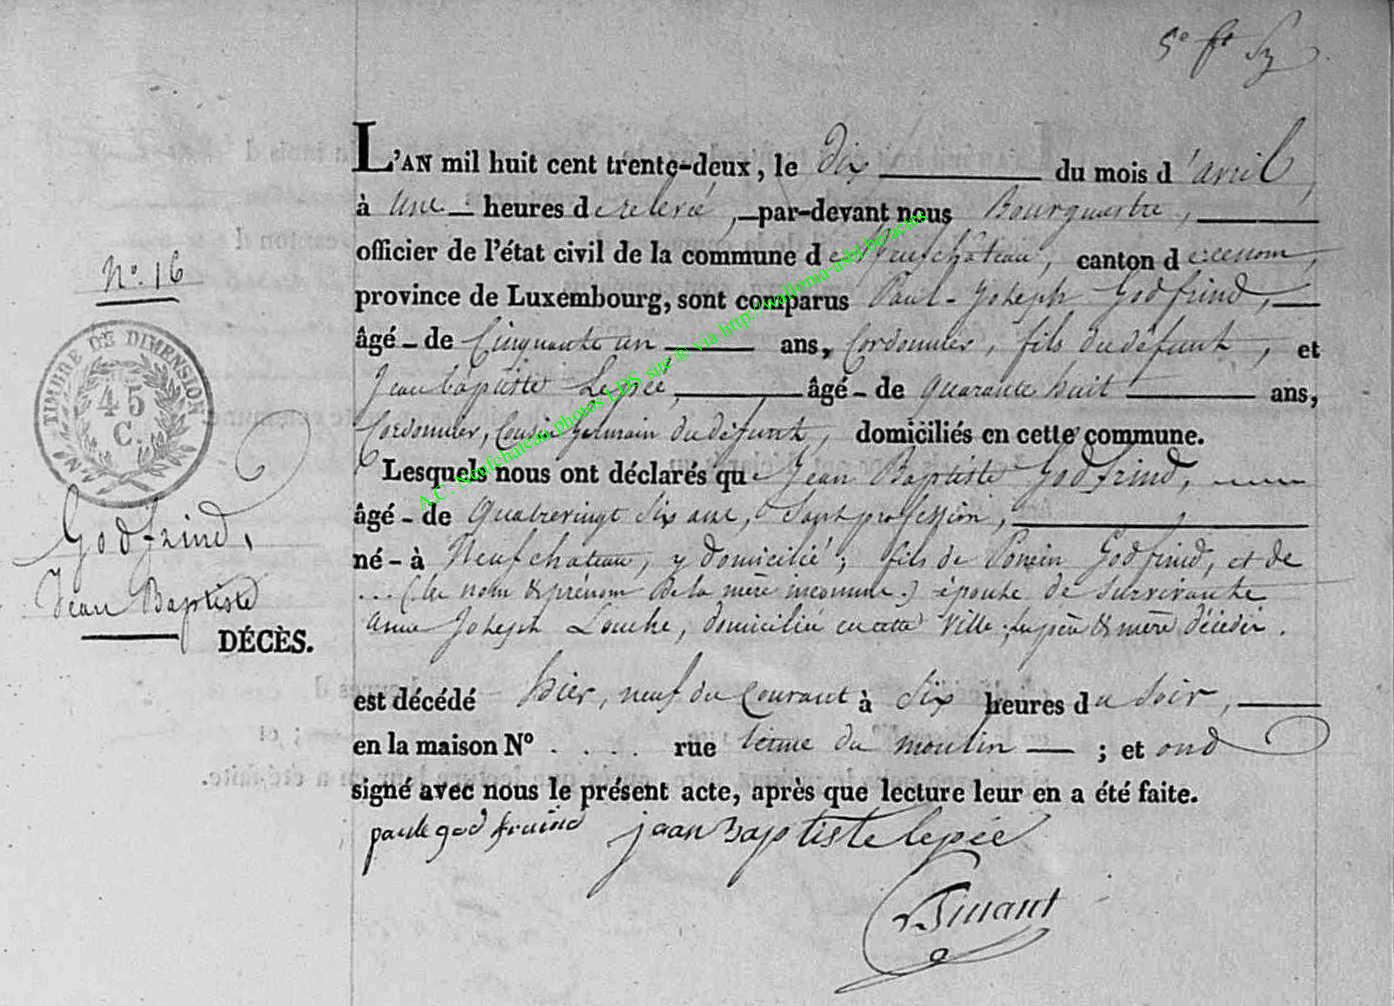 5e ft
L'AN mil huit cent trente-deux, le dix du mois d'avril,
à une heures de relevé, par-devant nous Bourgmestre,
officier de l'état civil de la commune de Neufchâteau, canton de ce nom,
N°. 16
province de Luxembourg, sont comparus Paul-Joseph Godfrind,
âgé - de Cinquante un ans, Cordonnier, fils du défunt, et
TIMBRE DE DIMENSION
45 C.
Jean baptiste Lepiée, âgé - de quarante huit ans,
Cordonnier, Cousin germain du défunt, domiciliés en cette commune.
Lesquels nous ont déclarés que Jean Baptiste Godfrind,
âgé - de Quatrevingt six ans, Sans profession,
Godfrind,
né - à Neufchateau, y domicilié; fils de Godfrind, et de
Jean Baptiste
... (le nom & prénom de la mère inconnu.) époux de survivante
anne Joseph Louche, domiciliée en cette ville; ses père & mère décédés.
DÉCÈS.
est décédé hier, neuf du Courant à six heures du soir,
en la maison N° .... rue terme du moulin ; et ont
signé avec nous le présent acte, après que lecture leur en a été faite.
paule god fruind jean Baptiste lepiée
A.C. Neufchateau photos LDS site © via http://wallonia-asbl.be/actes